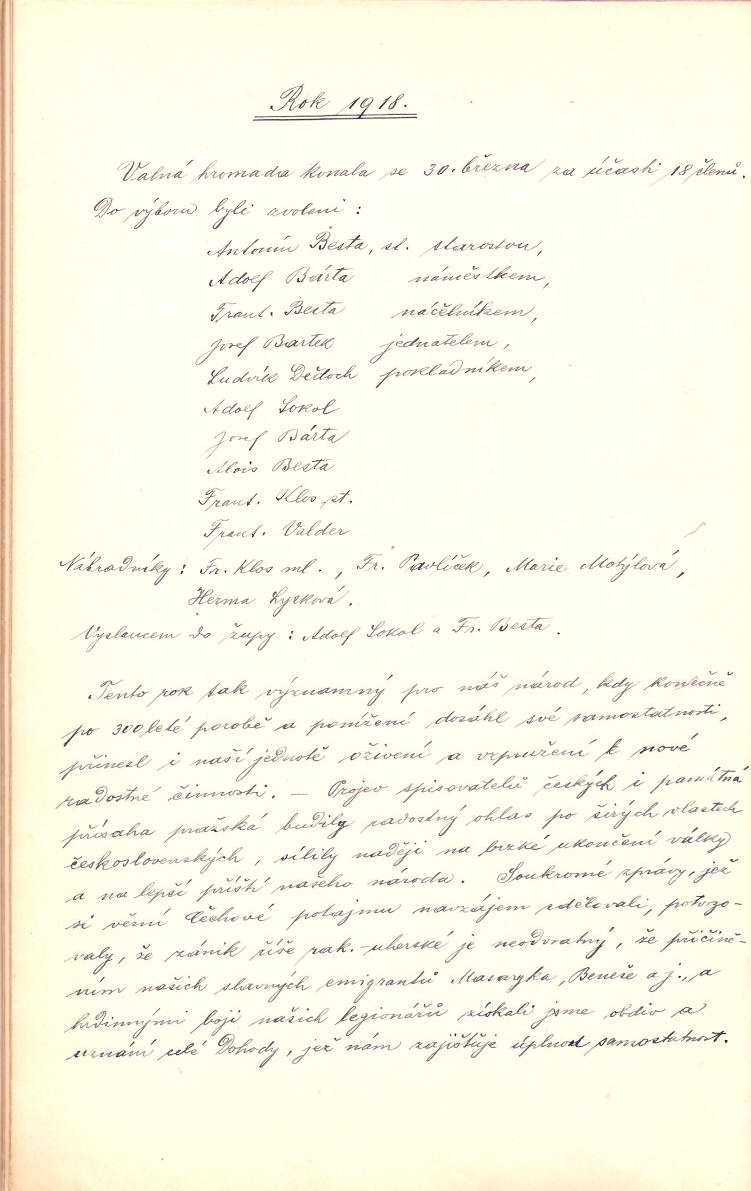 Rok 1918.
Valná hromada konala se 30. března za účasti 18 členů.
Do výboru byli zvoleni :
Antonín Besta, st. starostou,
Adolf Bárta náměstkem,
Frant. Besta náčelníkem,
Josef Bartek jednatelem,
Ludvík Dětoch pokladníkem,
Adolf Sokol
Josef Bárta
Alois Besta
Frant. Klos st.
Frant. Valder
Náhradníky : Fr. Klos ml. , Fr. Pavlíček, Marie Motýlová,
Herma Lysková.
Vyslancem do župy : Adolf Sokol a Fr. Besta.
Tento rok tak významný pro náš národ, kdy konečně
po 300leté porobě a ponížení dosáhl své samostatnosti,
přinesl i naší jednotě oživení a vzpružení k nové
radostné činnosti. — Projev spisovatelů českých i památná
přísaha pražská budily radostný ohlas po širých vlastech
československých, sílily naději na brzké ukončení války
a na lepší příští našeho národa. Soukromé zprávy, jež
si věrní Čechové potajmu navzájem sdělovali, potvrzo-
valy, že zánik říše rak.-uherské je neodvratný, že přičině-
ním našich slavných emigrantů Masaryka, Beneše a j., a
hrdinnými boji našich legionářů získali jsme obdiv a
uznání celé Dohody, jež nám zajišťuje úplnou samostatnost.